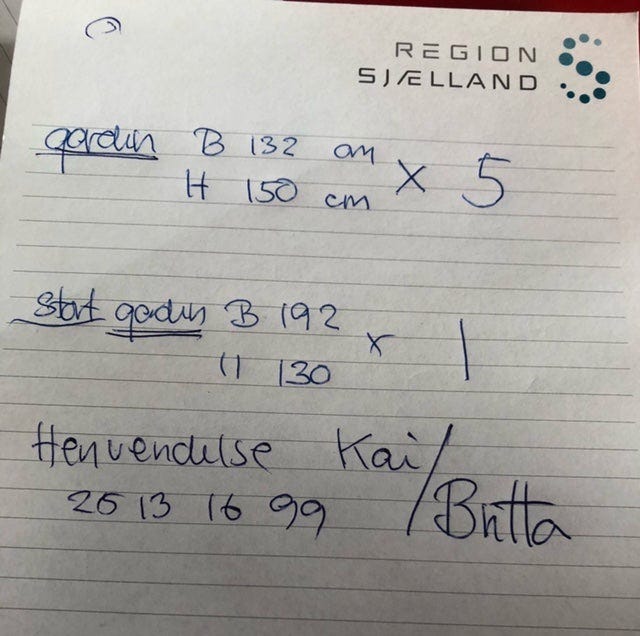 REGION
SJÆLLAND
gardin B 132 cm
H 150 cm x 5
Stort gardin B 192
H 130 x 1
Henvendelse Kai/
26 13 16 99 Britta